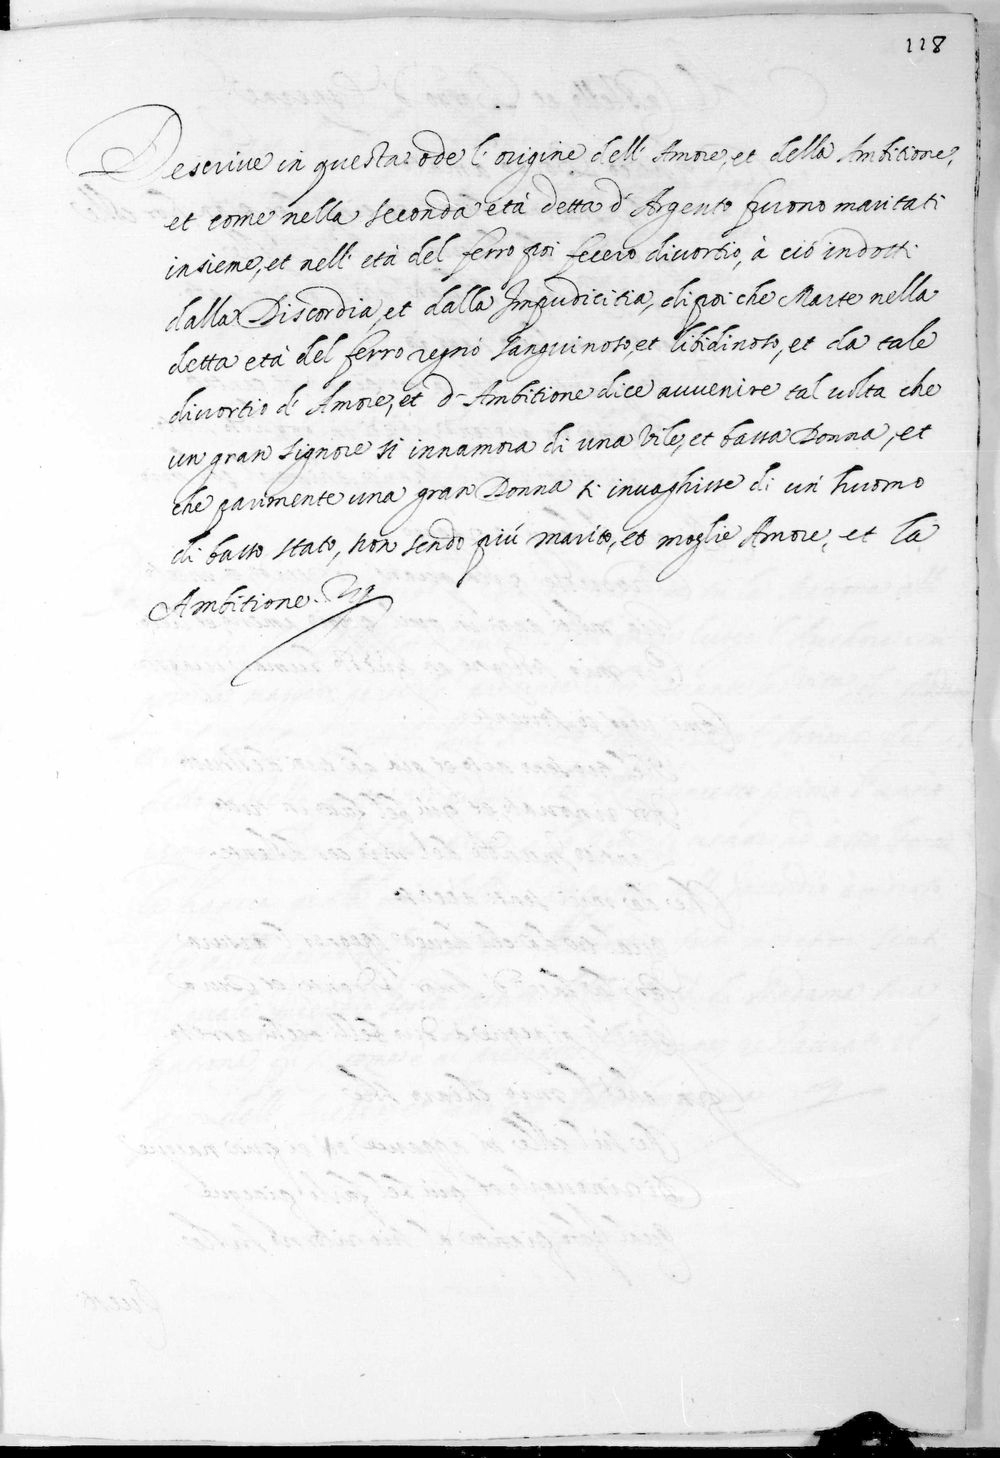 118
Descrive in questa ode l'origine dell'Amore, et della Ambitione,
et come nella seconda età detta d'Argento furono maritati
insieme, et nell'età del ferro poi fecero divortio, à ciò indotti
dalla Discordia, et dalla Impudicitia, dipoi che Marte nella
detta età del ferro regnò sanguinoso, et libidinoso, et da tale
divortio d'Amore, et d'Ambitione dice avvenire tal volta che
un gran signore si innamora di una vile, et bassa Donna, et
che parimente una gran Donna si invaghisse di un' huomo
di basso stato, non sendo più marito, et moglie Amore, et la
Ambitione.